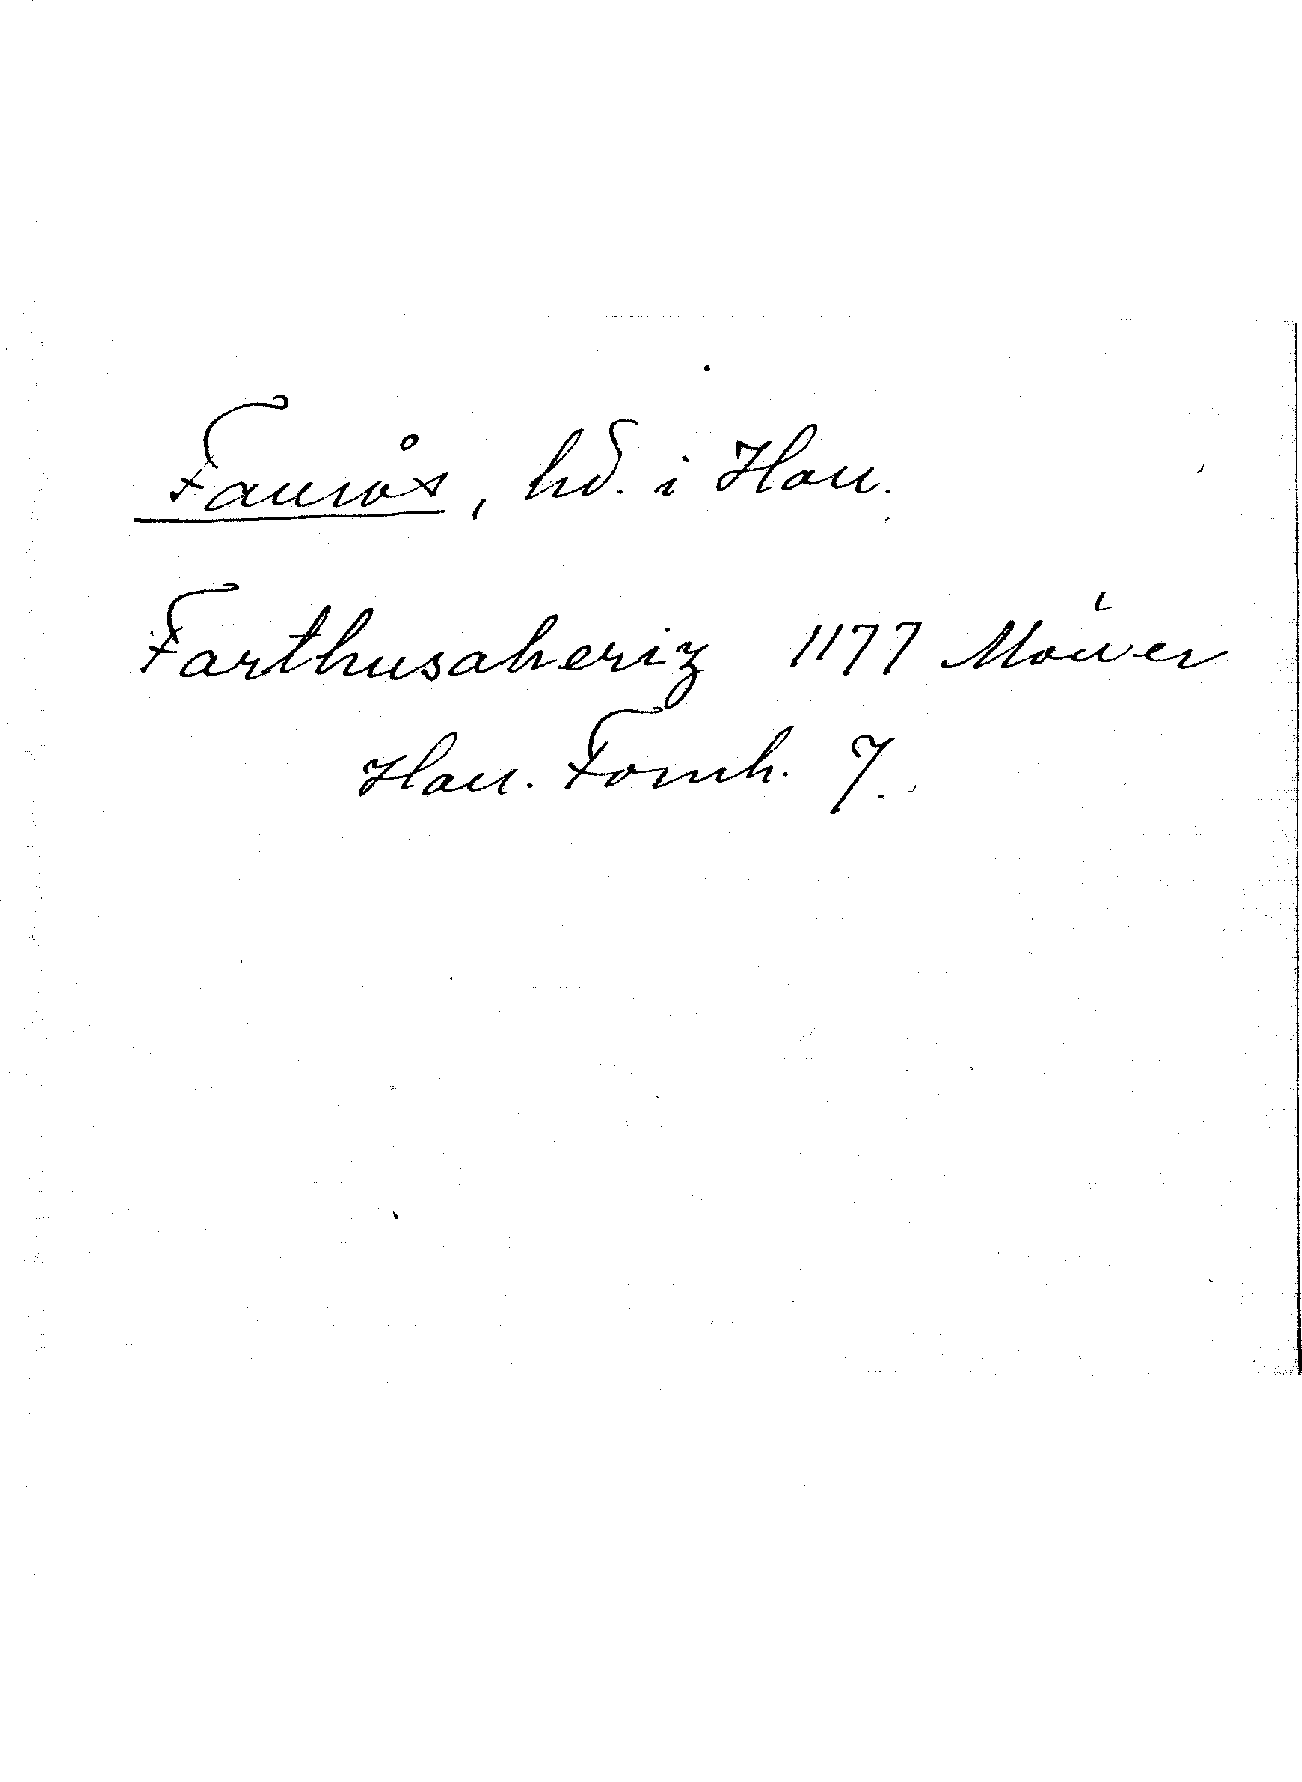 Faurås, hd. i Hall.
Farthusaheriz 1177 Möller
Hall. Fornh. 7.